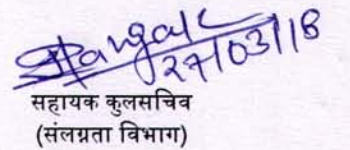 27/03/18
सहायक कुलसचिव
(संलग्नता विभाग)